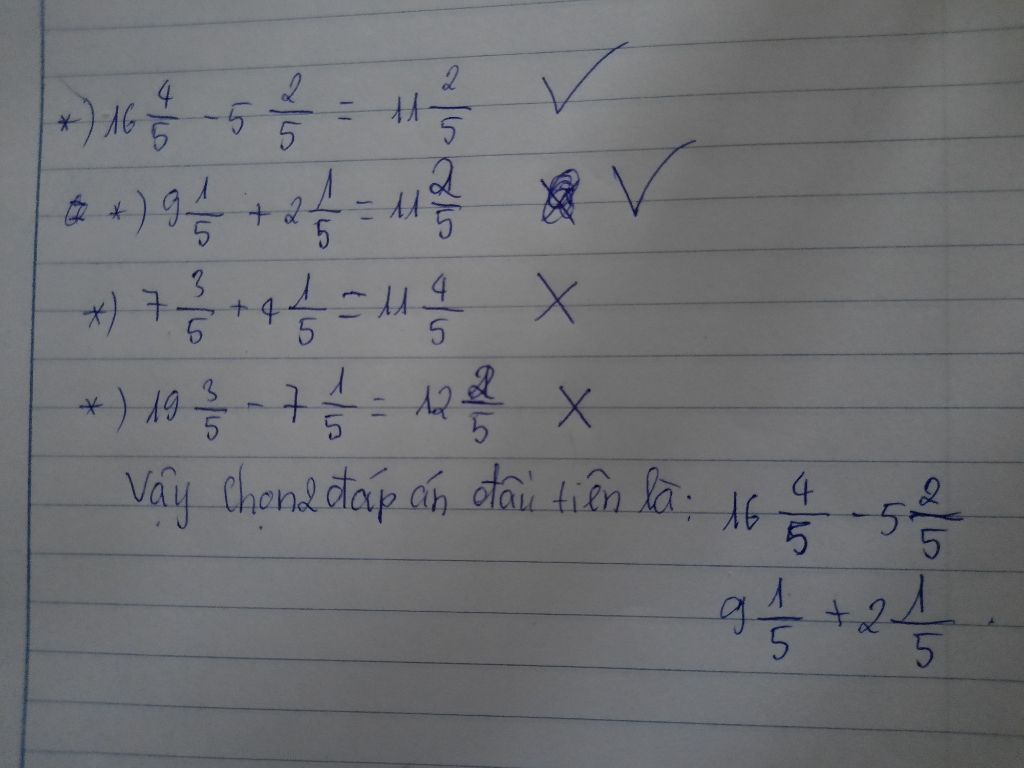 *) 16 4/5 - 5 2/5 = 11 2/5 ✓
*) 9 1/5 + 2 1/5 = 11 2/5 ✓
*) 7 3/5 + 4 1/5 = 11 4/5 X
*) 19 3/5 - 7 1/5 = 12 2/5 X
Vậy chọn 2 đáp án đầu tiên là: 16 4/5 - 5 2/5
9 1/5 + 2 1/5 .